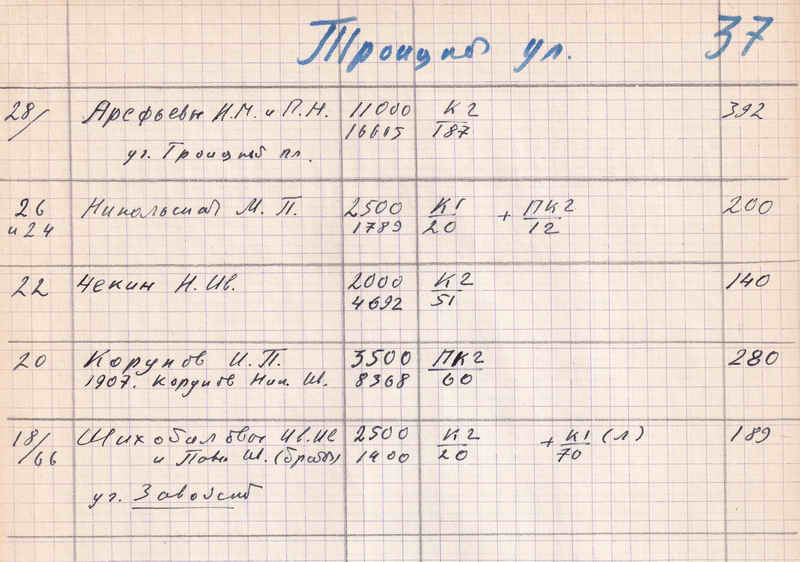 Троицкая ул. 37
28/ Арефьевы И.М. и П.Н. 11000 К2 392
16605 187
уг. Троицкой пл.
26 Никольская М. П. 2500 К1 + ПК2 200
и 24 1789 20 12
22 Чекин Н. Ив. 2000 К2 140
4692 51
20 Корунов И. П. 3500 ПК2 280
1907. Корунов Ник. Ив. 8368 60
18/ Шихобаловы Ив. Ив 2500 К2 + К1 (л) 189
66 и Павл Ив. (братья) 1400 20 70
уг. Завойской